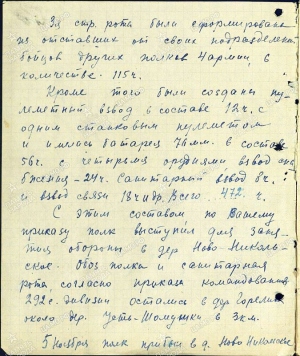 3я стр. рота были сформирована
из отставших от своих подразделений
бойцов других полков 4 армии, в
количестве 115 ч.
Кроме того были созданы пу-
леметный взвод в составе 12 ч. с
одним станковым пулеметом
и имлась батарея 76 мм. в составе
56 ч. с четырьмя орудиями взвод сна
бжения – 24 ч. Санитарный взвод 8 ч.
и взвод связи 18 и др. Всего 472 ч.
С этим составом, по Вашему
приказу полк выступил для заня-
тия обороны в дер Ново-Николь-
ское. Обоз полка и санитарная
рота согласно приказа командования
292 с. дивизии остались в дер Горелуха
около дер. Усть-Шомушка в 3 км.
5 ноября полк прибыл в д. Ново Никольское